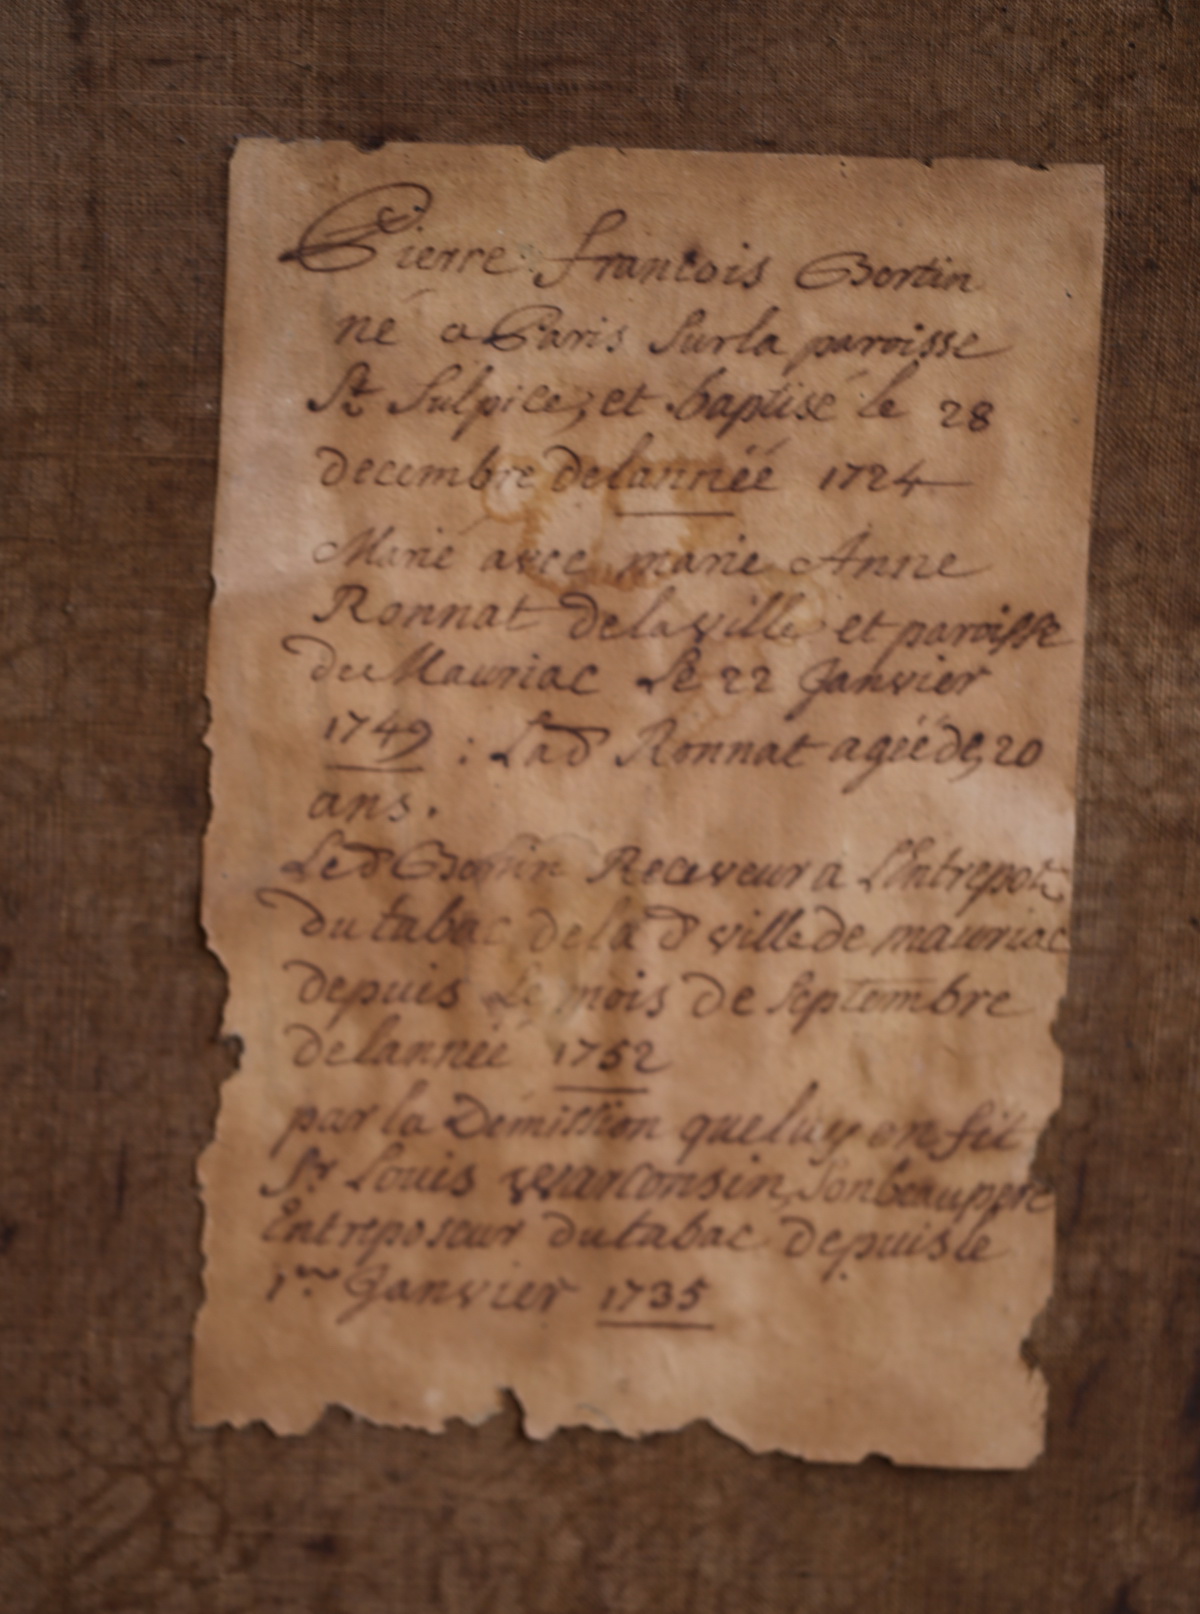 Pierre francois Bertin
né a Paris Sur la paroisse
St Sulpice, et baptisé le 28
decembre de lannéé 1724
Marié avec marie Anne
Ronnat de la ville et paroisse
du Mauriac Le 22 Janvier
1749 : Lad Ronnat agéé de 20
ans.
Led Receveur a L'Entrepot
du tabac de la d ville de mauriac
depuis Le mois de Septembre
de lannéé 1752
par la Demission que luy en fit
Sr Louis Son beauppre
Entreposeur du tabac depuis le
1er Janvier 1735